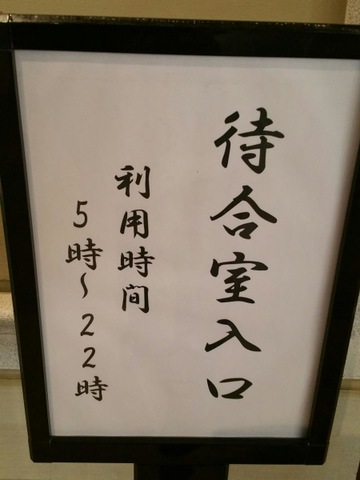 待合室入口
利用時間
5時～22時